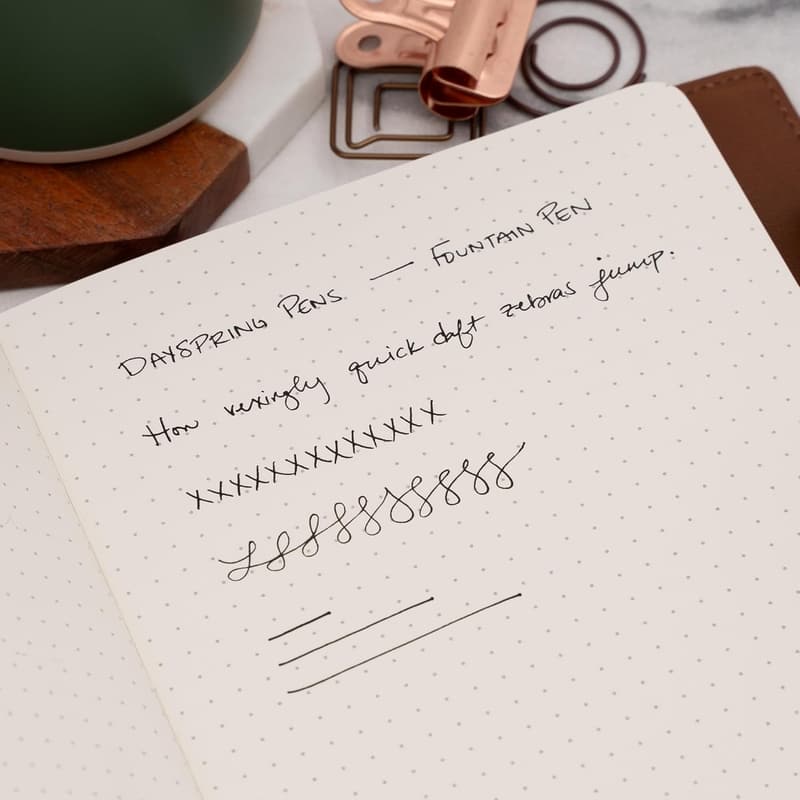 DAYSPRING PENS. — FOUNTAIN PEN
How vexingly quick daft zebras jump.
XXXXXXXXXXXXX